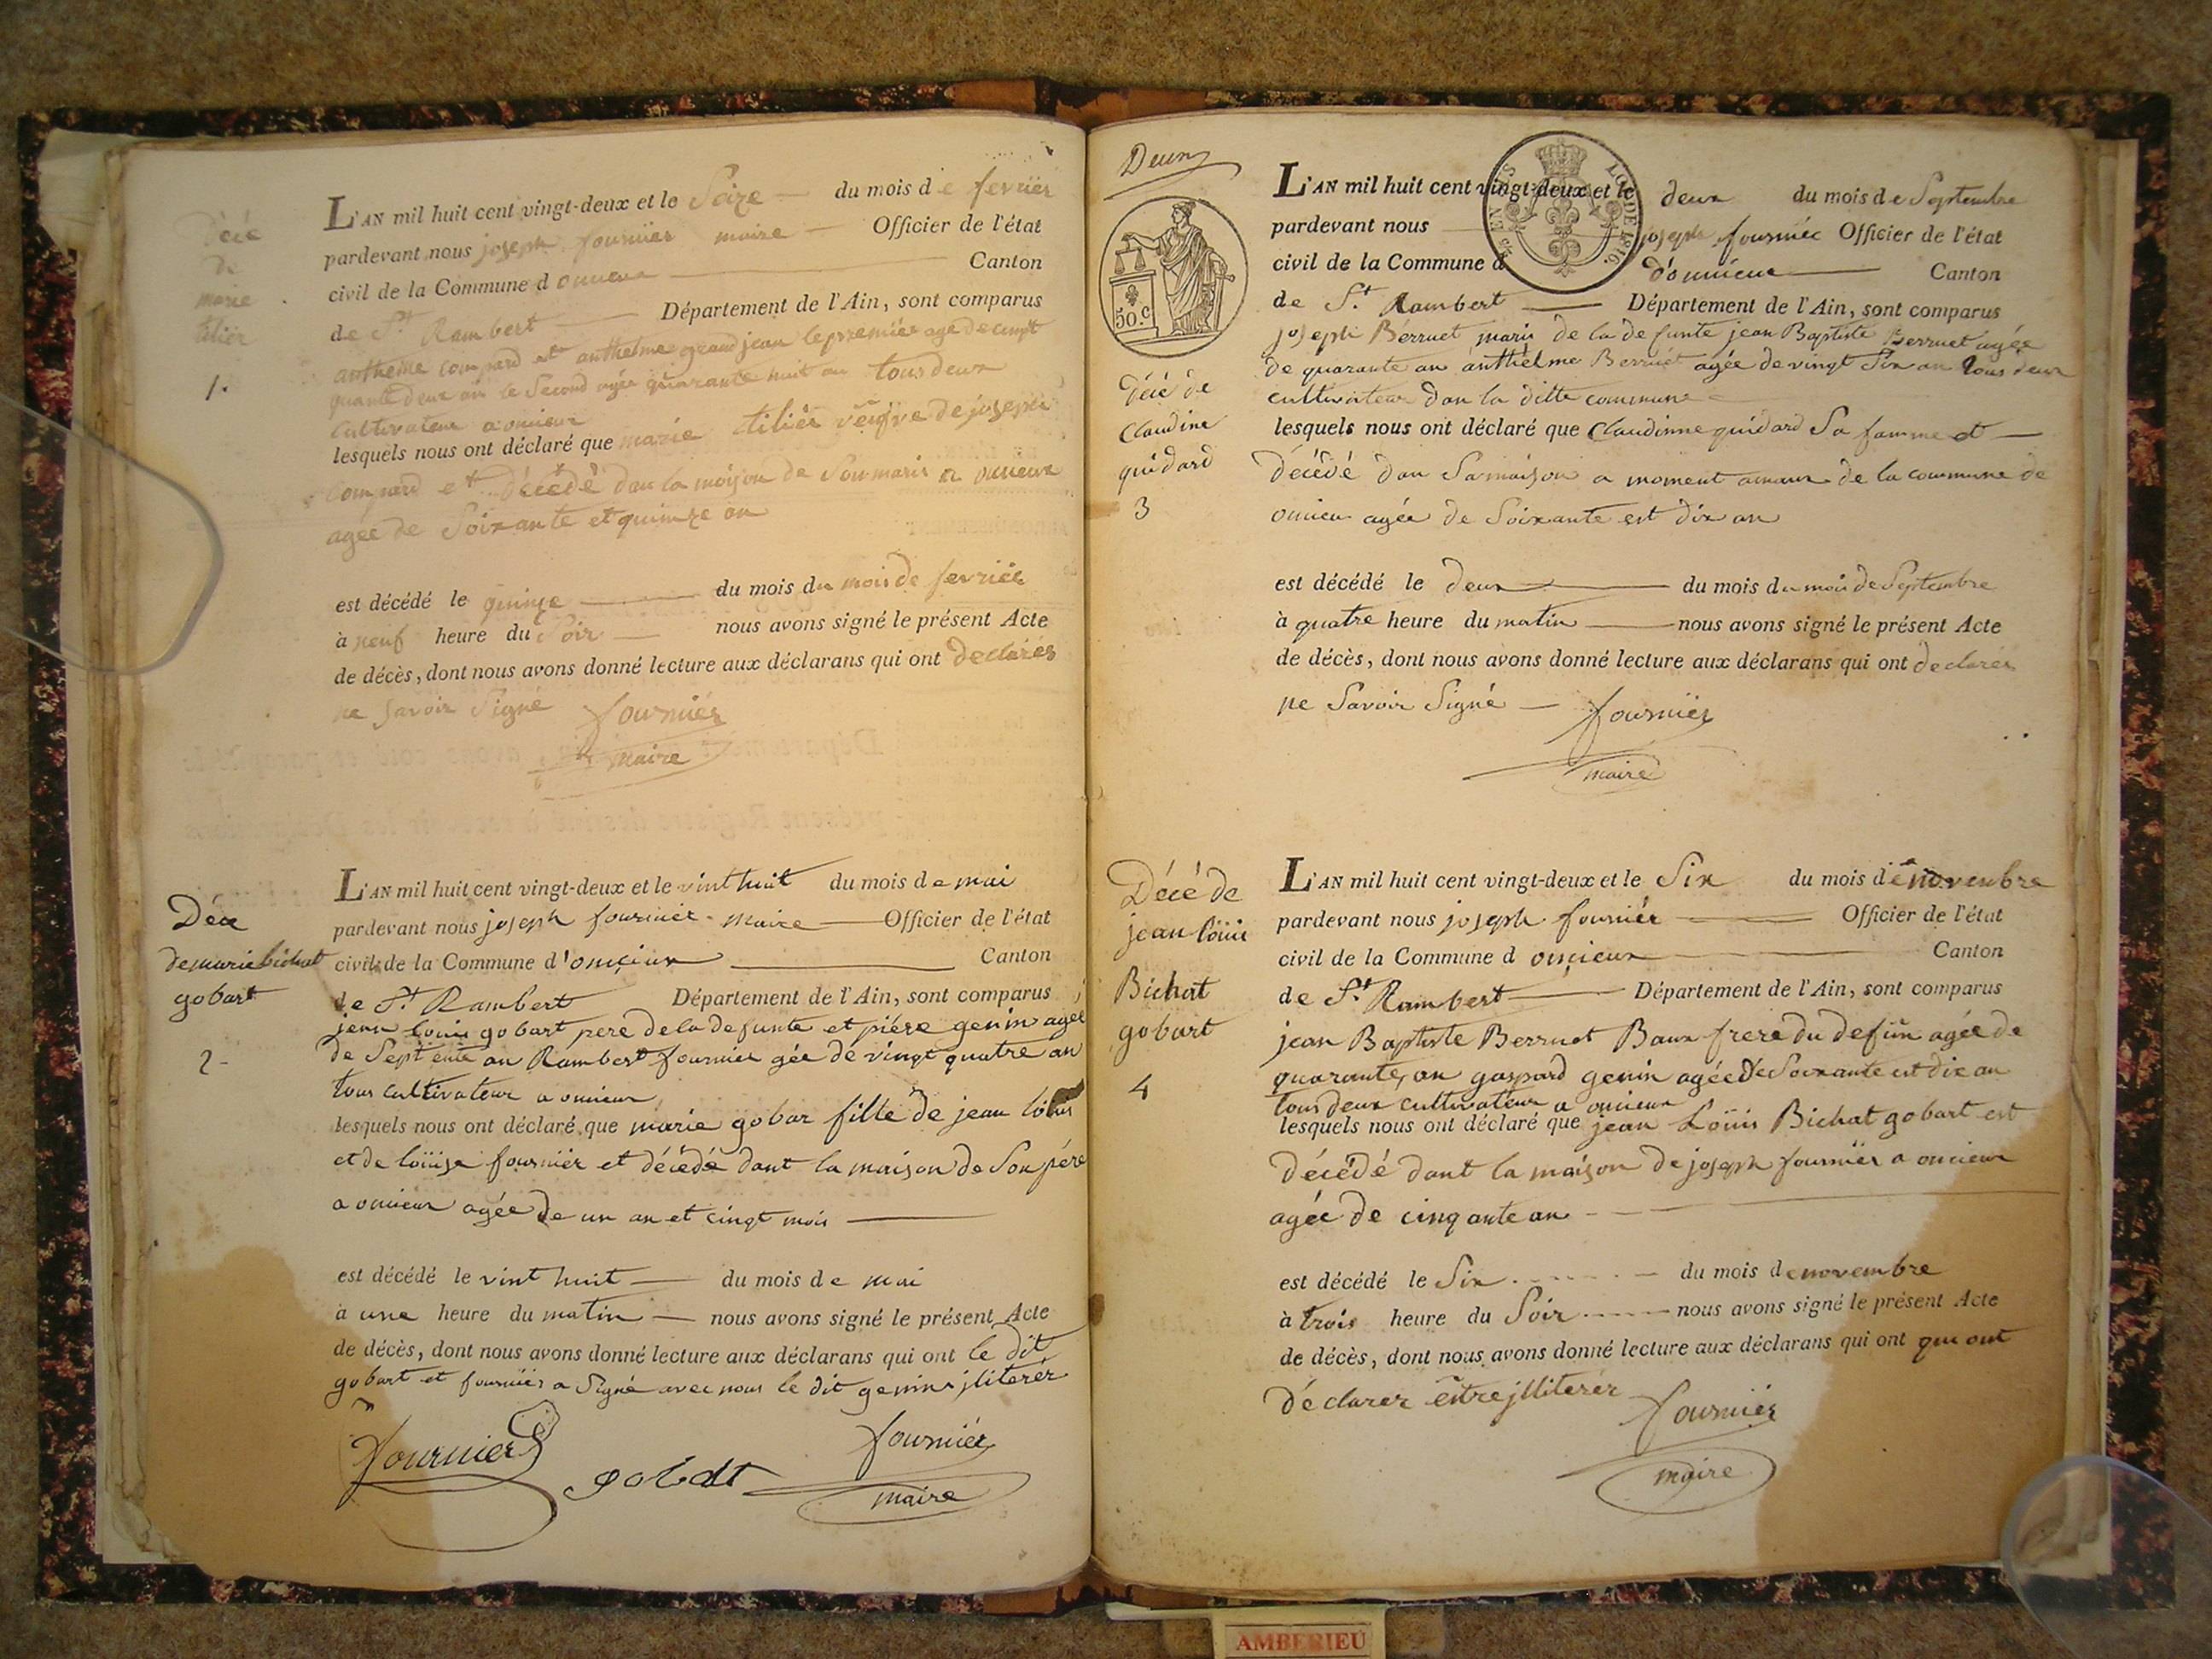 Décé
de
marie
tiliér
1.
L'AN mil huit cent vingt-deux et le Seize du mois de fevriér
pardevant nous joseph fourniér maire Officier de l'état
civil de la Commune d oncieux Canton
de St Rambert Département de l'Ain, sont comparus
anthelme compard et anthelme grandjean le premiér age de cinqt
quante deux an le Second agée quarante huit an tous deux
cultivateur a oncieux
lesquels nous ont déclaré que marie tiliér veufve de joseph
compard et décédé dan la maison de Son maris a oncieux
agée de Soixante et quinze an
est décédé le quinze du mois du mois de fevriér
à neuf heure du Soir nous avons signé le présent Acte
de décès, dont nous avons donné lecture aux déclarans qui ont declarés
ne Savoir Signé fourniér
maire
Déce
de marie bichat
gobart
2-
L'AN mil huit cent vingt-deux et le vint huit du mois de mai
pardevant nous joseph fourniér maire Officier de l'état
civil de la Commune d'oncieux Canton
de St Rambert Département de l'Ain, sont comparus
jean louis gobart pere de la defunte et piére genin agée
de Sept ente an Rambert fourniér gée de vingt quatre an
tous cultivateur a oncieux
lesquels nous ont déclaré que marie gobar fille de jean loïus
et de loïiise fourniér et décédé dant la maison de Son pére
a oncieux agée de un an et cinqt mois
est décédé le vint huit du mois de mai
à une heure du matin nous avons signé le présent Acte
de décès, dont nous avons donné lecture aux déclarans qui ont le dit
gobart et fourniér a Signé avec nous le dit genin jliterér
fournier gobat fourniér
maire
Deux
50.c
Décé de
Claudine
guidard
3
L'AN mil huit cent vingt-deux et le deux du mois de Septembre
pardevant nous joseph fourniér Officier de l'état
civil de la Commune d d'oncieux Canton
LOI DE 1816.
de St. Rambert Département de l'Ain, sont comparus
joseph Berruet maris de la defunte jean Baptiste Berruet agée
de quarante an anthélme Berruét agée de vingt Six an tous deux
cultivateur dan la ditte commune
lesquels nous ont déclaré que Claudinne guidard Sa famme et
décédé dan Samaison a moment de la commune de
oncieu agée de Soixante est dix an
est décédé le deux du mois du mois de Septembre
à quatre heure du matin nous avons signé le présent Acte
de décès, dont nous avons donné lecture aux déclarans qui ont declarér
ne Savoir Signé fourniér
maire
Décé de
jean loüii
Bichat
gobart
4
L'AN mil huit cent vingt-deux et le Six du mois de novembre
pardevant nous joseph fourniér Officier de l'état
civil de la Commune d oncieux Canton
de St. Rambert Département de l'Ain, sont comparus
jean Baptiste Berruet Baux frere du defun agée de
quarante, an gaspard genin agée de Soixante est dix an
tous deux cultivateur a oncieux
lesquels nous ont déclaré que jean Loüis Bichat gobart est
décédé dant la maison de joseph fourniér a oncieux
agée de cinqante an
est décédé le Six du mois de novembre
à trois heure du Soir nous avons signé le présent Acte
de décès, dont nous avons donné lecture aux déclarans qui ont qui ont
déclarer être jlliterér fourniér
maire
AMBERIEU